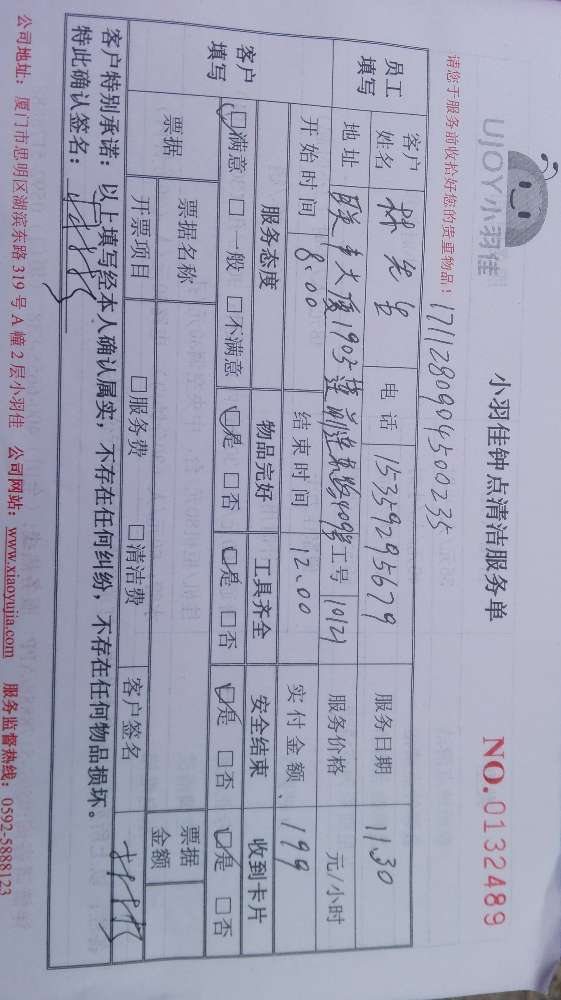 UJOY小羽佳
小羽佳钟点清洁服务单
NO.0132489
请您于服务前收拾好您的贵重物品!
1711280994500235
员工填写
客户姓名 林先生 电话 15359295679 服务日期 11.30
地址 大厦1903 工号 10121 服务价格 元/小时
开始时间 8:00 结束时间 12:00 实付金额 199
客户填写
服务态度 物品完好 工具齐全 安全结束 收到卡片
☑满意 □一般 □不满意 ☑是 □否 ☑是 □否 ☑是 □否 ☑是 □否
票据 票据名称 票据金额
开票项目 □服务费 □清洁费 客户签名
客户特别承诺:以上填写经本人确认属实,不存在任何纠纷,不存在任何物品损坏。
特此确认签名:
公司地址:厦门市思明区湖滨东路 319 号 A 幢 2 层小羽佳 公司网站:www.xiaoyujia.com 服务监督热线:0592-5888123